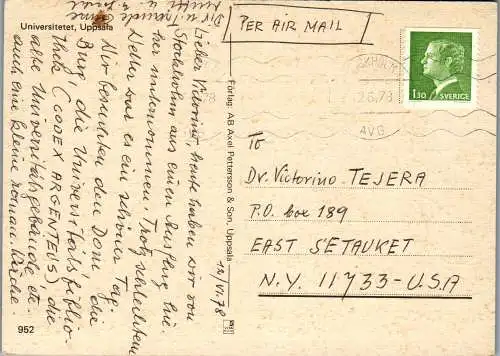 Universitetet, Uppsala
12/VI.78
Lieber Victorino, heute haben wir von
Stockholm aus einen Ausflug hie-
her unternommen. Trotz schlechtem
Wetter war es ein schöner Tag.
Wir besuchten den Dom, die
Burg, die Universitätsbiblio-
thek (CODEX ARGENTEUS) die
alte Universitätsgebäude etc.
auch eine kleine roman. Kirche.
Dir u.
952
Förlag: AB Axel Pettersson & Son, Uppsala
PER AIR MAIL
STOCKHOLM
2.6.78
AVG
1.30 SVERIGE
To
Dr. Victorino TEJERA
P.O. box 189
EAST SETAUKET
N.Y. 11733-U.S.A